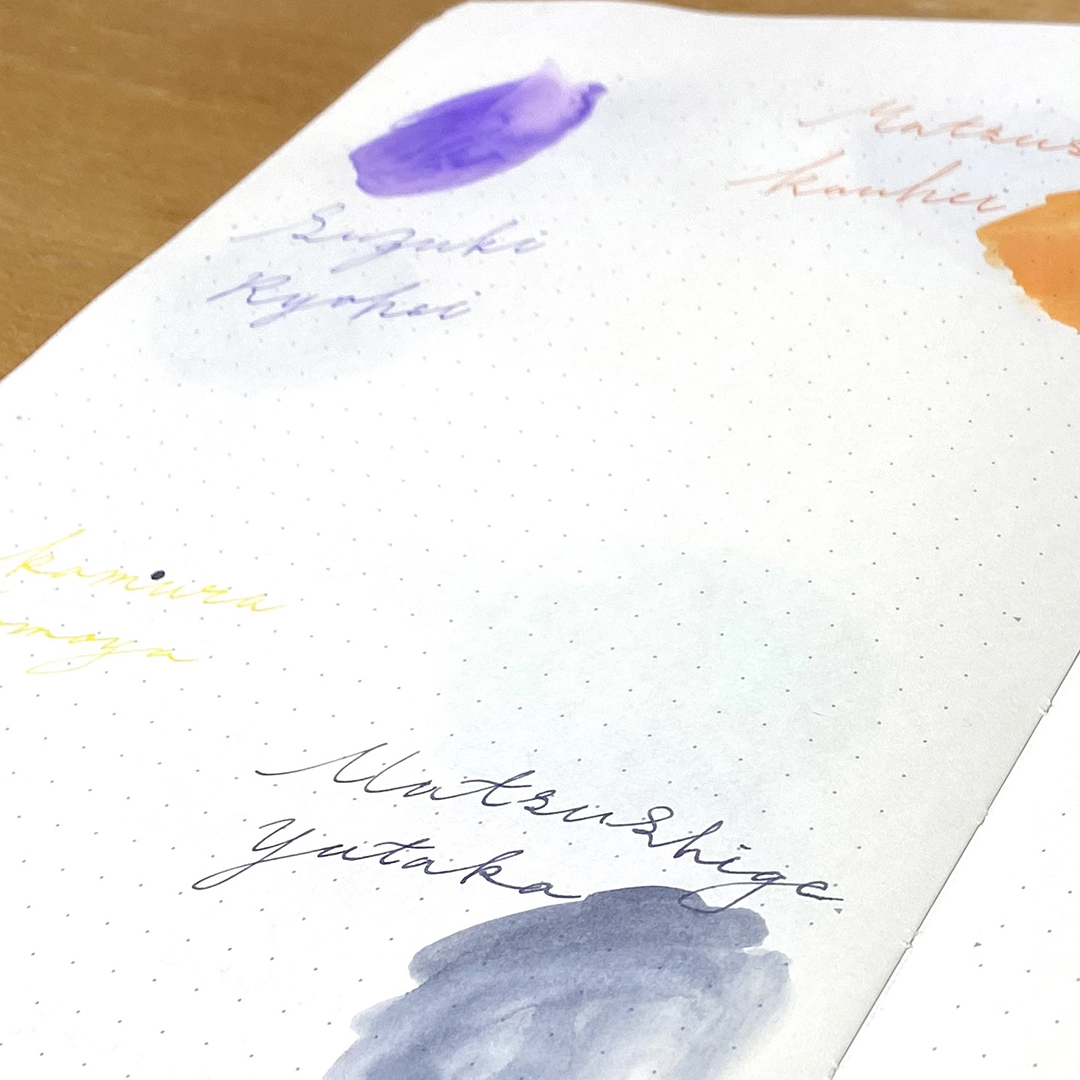 Suzuki
Ryohei
Matsus
kouhei
kamura
moya
Matsushige
Yutaka